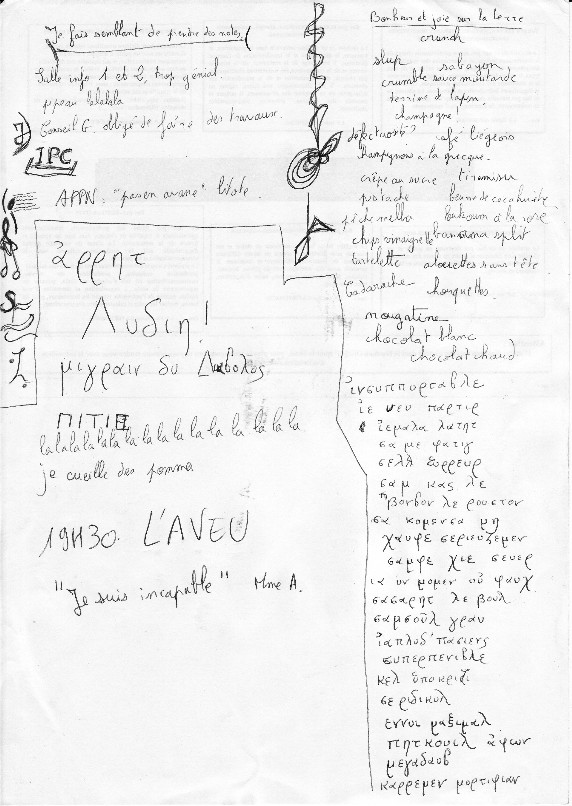 Je fais semblant de prendre des notes.
Salle info 1 et 2, trop génial
pipeau lalalala
Conseil G. obligé de faire des travaux.
IPC
APPN: "pas en avane" litote.
ἀρρητ
Λυδιη!
μιγραιν δυ Διαβολος
ΠΙΤΙΕ
lalalalalalalalalalalalalala
je cueille des pommes
19H30. L'AVEU
"Je suis incapable" Mme A.
Bonheur et joie sur la terre
crunch
slup sabayon
crumble sauce moutarde
terrine de lapin.
champagne!
café liégeois
champignons à la grecque.
crêpe au sucre tiramisu
pistache
loukoum à la rose
chips vinaigrette banana split
tartelette alouettes sans tête.
chouquettes.
nougatine
chocolat blanc
chocolat chaud
ἰνσυππορταβλε
ἰε νευ παρτιρ
ἰεμαλα λατητ
σα με φατιγ
σελα
σαμ κας λε
βονβον λε ρουστον
σα κομενσα μη
χαυφε σεριευζεμεν
σαμφε χιε σευερ
ια υν μομεν οὐ φαυχ
σασαρητ λε βουλ
σαμσοῦλ γραυ
ἰαπλυδ'πασιενς
συπερπενιβλε
κελ ὑποκριζι
σε ριδικυλ
εννυι μαξιμαλ
πητκουιλ ἀφων
μεγαδαυβ
καρρεμεν μορτιφιαν